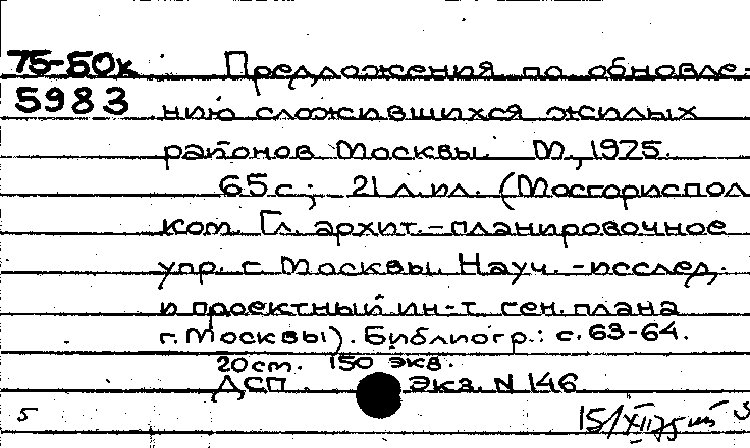 75-50к Предложения по обновле-
5983 нию сложившихся жилых
районов Москвы. М., 1975.
65 с.; 21 л. ил. (Мосгориспол
ком. Гл. архит.-планировочное
упр. г. Москвы. Науч.-исслед.
и проектный ин-т ген. плана
г. Москвы). Библиогр.: с. 63-64.
20 cm. 150 экз.
ДСП Экз. N 146
5 15/XII 75